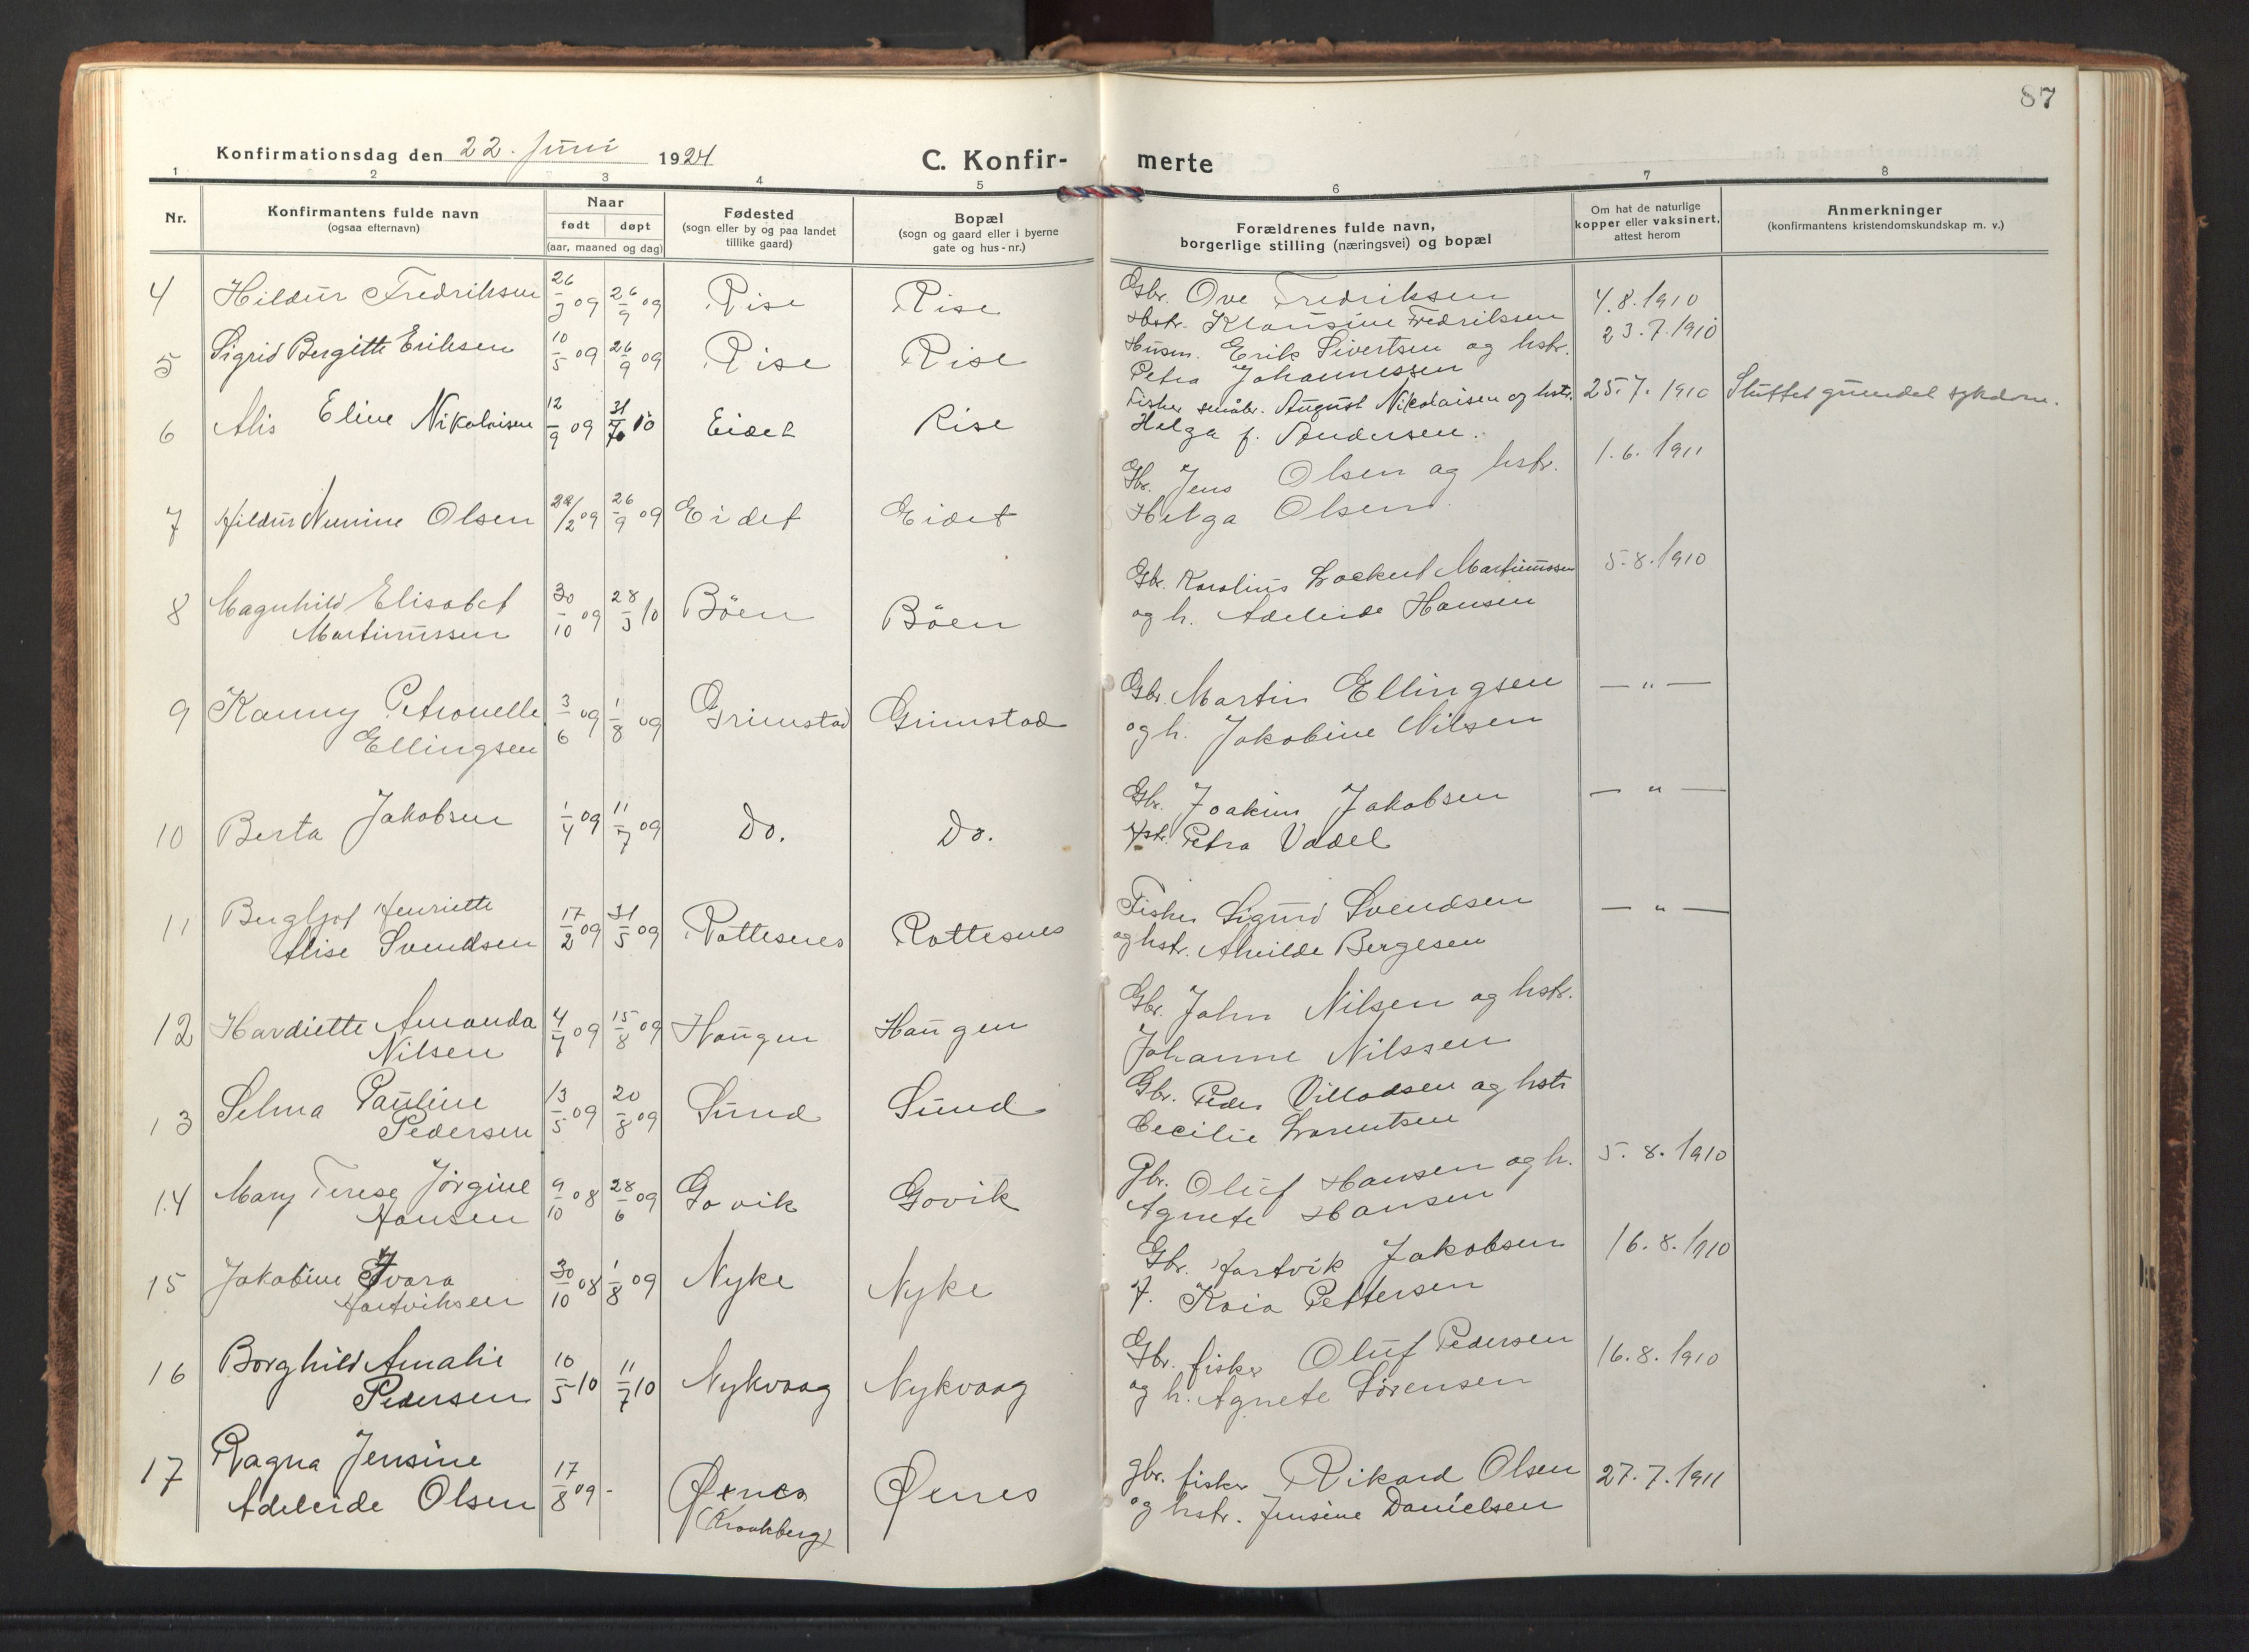 87
Konfirmationsdag den 22. Juni 1924
C. Konfir-
merte
1 2 3 4 5 6 7 8
Nr.
Konfirmantens fulde navn
(ogsaa efternavn)
Naar
født døpt
(aar, maaned og dag)
Fødested
(sogn eller by og paa landet
tillike gaard)
Bopæl
(sogn og gaard eller i byerne
gate og hus-nr.)
Forældrenes fulde navn,
borgerlige stilling (næringsvei) og bopæl
Om hat de naturlige
kopper eller vaksinert,
attest herom
Anmerkninger
(konfirmantens kristendomskundskap m. v.)
4 Hildur Fredriksen 26/3 09 26/9 09 Rise Rise Gbr. Ove Fredriksen 4.8.1910
Hstr. Klausine Fredriksen
5 Sigrid Bergitte Eriksen 10/5 09 26/9 09 Rise Rise Husm. Erik Sivertsen og hstr. 23.7.1910
Petra Johannessen
6 Alis Eline Nikolaisen 12/9 09 31/7 10 Eidet Rise Fisker småbr. August Nikolaisen og hstr. 25.7.1910 sykdom.
Helga f. Andersen.
7 Hildur Numine Olsen 22/2 09 26/9 09 Eidet Eidet Gbr. Jens Olsen og hstr. 1.6.1911
Helga Olsen
8 Magnhild Elisabet 30/10 09 28/3 10 Böen Böen Gbr. Karolius Lockert Martinussen 5.8.1910
Martinussen og h. Adeleide Hansen
9 Kanny Petronelle 3/6 09 1/8 09 Grimstad Grimstad Gbr. Martin Ellingsen — " —
Ellingsen og h. Jakobine Nilsen
10 Berta Jakobsen 1/4 09 11/7 09 Do. Do. Gbr. Joakim Jakobsen — " —
Hstr. Petra Vadel
11 Bergljot Henriette 17/2 09 31/5 09 Rottesnes Rottesnes Fisker Sigurd Svendsen — " —
Alise Svendsen og hstr. Alvilde Bergesen
12 Hardiette Amanda 4/7 09 15/8 09 Haugen Haugen Gbr. John Nilsen og hstr.
Nilsen Johanne Nilssen
13 Selma Pauline 13/5 09 20/8 09 Sund Sund Gbr. Peder Villadsen og hstr
Pedersen Cecilie Lorentsen
14 Mary Terese Jørgine 9/10 08 28/6 09 Govik Govik Gbr. Oluf Hansen og h. 5.8.1910
Hansen Agnete Hansen
15 Jakobine Ivara 30/10 08 1/8 09 Nyke Nyke Gbr. Hartvik Jakobsen 16.8.1910
Hartviksen H. Kaia Pettersen
16 Borghild Amalie 10/5 10 11/7 10 Nykvaag Nykvaag Gbr. fisker Oluf Pedersen 16.8.1910
Pedersen og h. Agnete Sörensen
17 Ragna Jensine 17/8 09 - Øenes Øenes gbr. fisker Rikard Olsen 27.7.1911
Adeleide Olsen (Kraakberg) og hstr. Jensine Danielsen